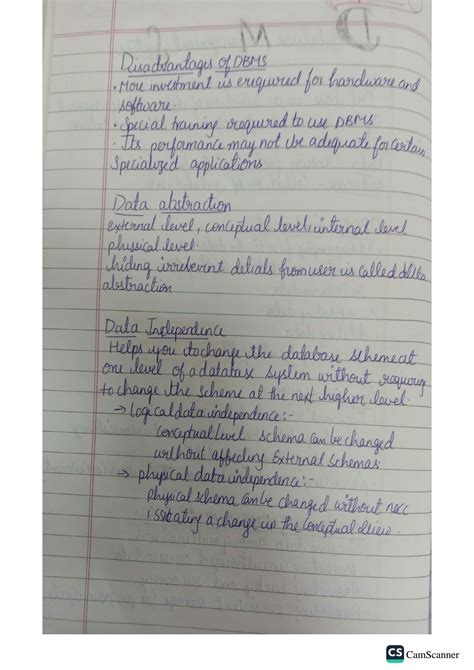 Disadvantages of DBMS
• More investment is required for hardware and
software.
• Special training required to use DBMS
• Its performance may not be adequate for certain
Specialized applications
Data abstraction
External level, conceptual level, internal level
physical level.
hiding irrelevent detials from user is called data
abstraction
Data Independence
Helps you to change the database scheme at
one level of a datatase system without requring
to change the scheme at the next higher level.
→ Logical data independence:-
conceptual level schema can be changed
without affecting External Schemas.
→ physical data independence:-
physical schema can be changed without necc
issitating a change in the conceptual view.
CS CamScanner